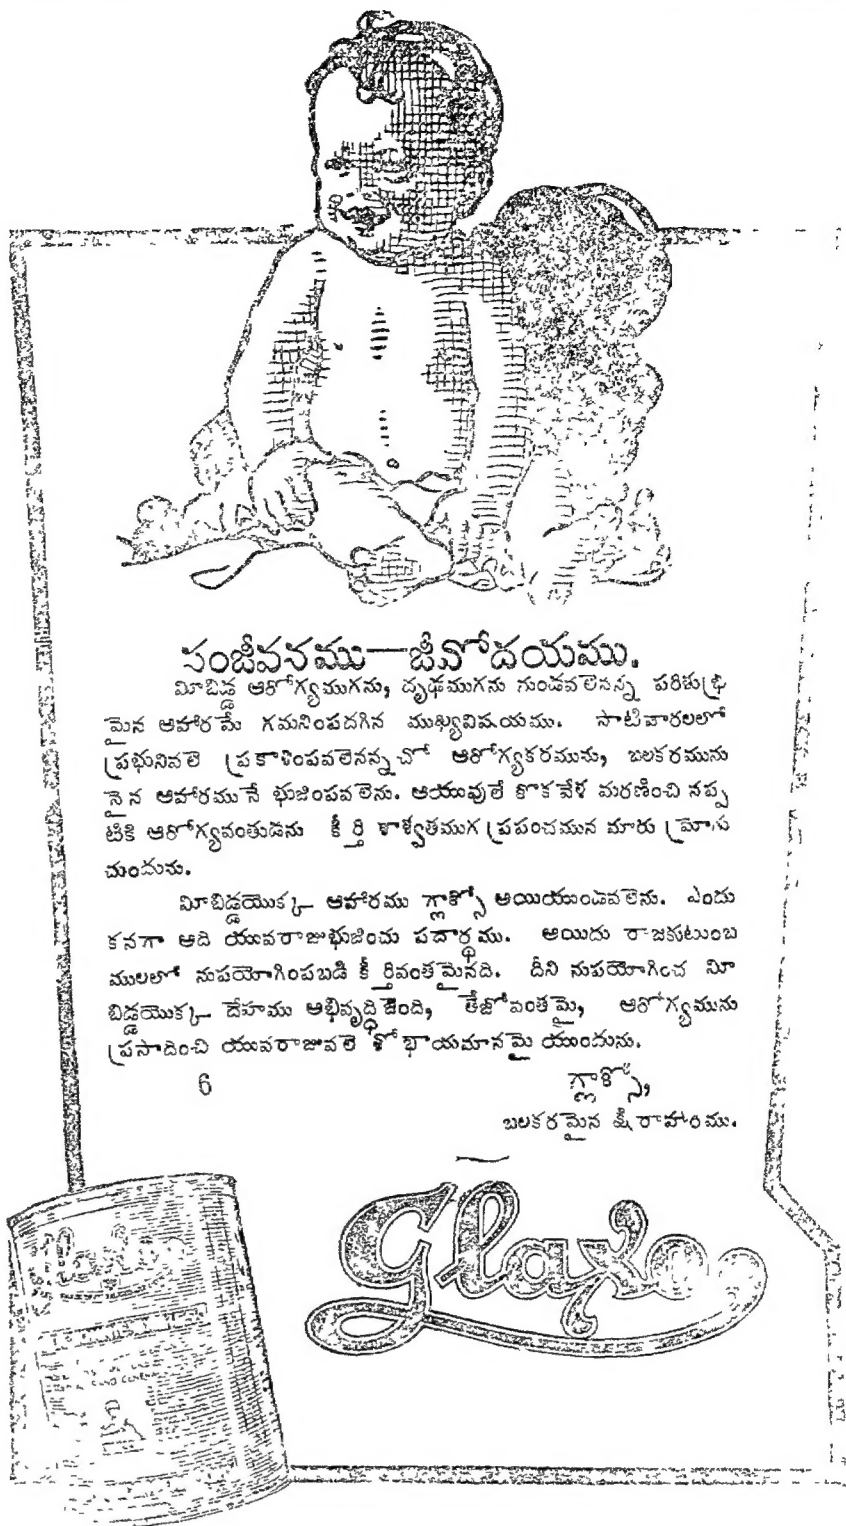 సంజీవనము—జీవోదయము.
మీబిడ్డ ఆరోగ్యముగను, దృఢముగను నుండవలెనన్న పరిశుభ్ర
మైన ఆహారమే గమనింపదగిన ముఖ్యవిషయము. సాటివారలలో
ప్రభునివలె ప్రకాశింపవలెనన్నచో ఆరోగ్యకరమును, బలకరమును
నైన ఆహారమునే భుజింపవలెను. ఆయువులే కొకవేళ మరణించి నప్ప
టికి ఆరోగ్యవంతుడను కీర్తి శాశ్వతముగ ప్రపంచమున మారు మ్రోగు
చుండును.
మీబిడ్డయొక్క ఆహారము గ్లాక్సో అయియుండవలెను. ఎందు
కనగా ఆది యువరాజుభుజించు పదార్థము. అయిదు రాజకుటుంబ
ములలో నుపయోగింపబడి కీర్తివంతమైనది. దీని నుపయోగించ మీ
బిడ్డయొక్క దేహము ఆభివృద్ధి జెంది, తేజోవంతమై, ఆరోగ్యమును
ప్రసాదించి యువరాజువలె శోభాయమానమై యుండును.
6 గ్లాక్సో,
బలకరమైన క్షీరాహారము.
Glaxo